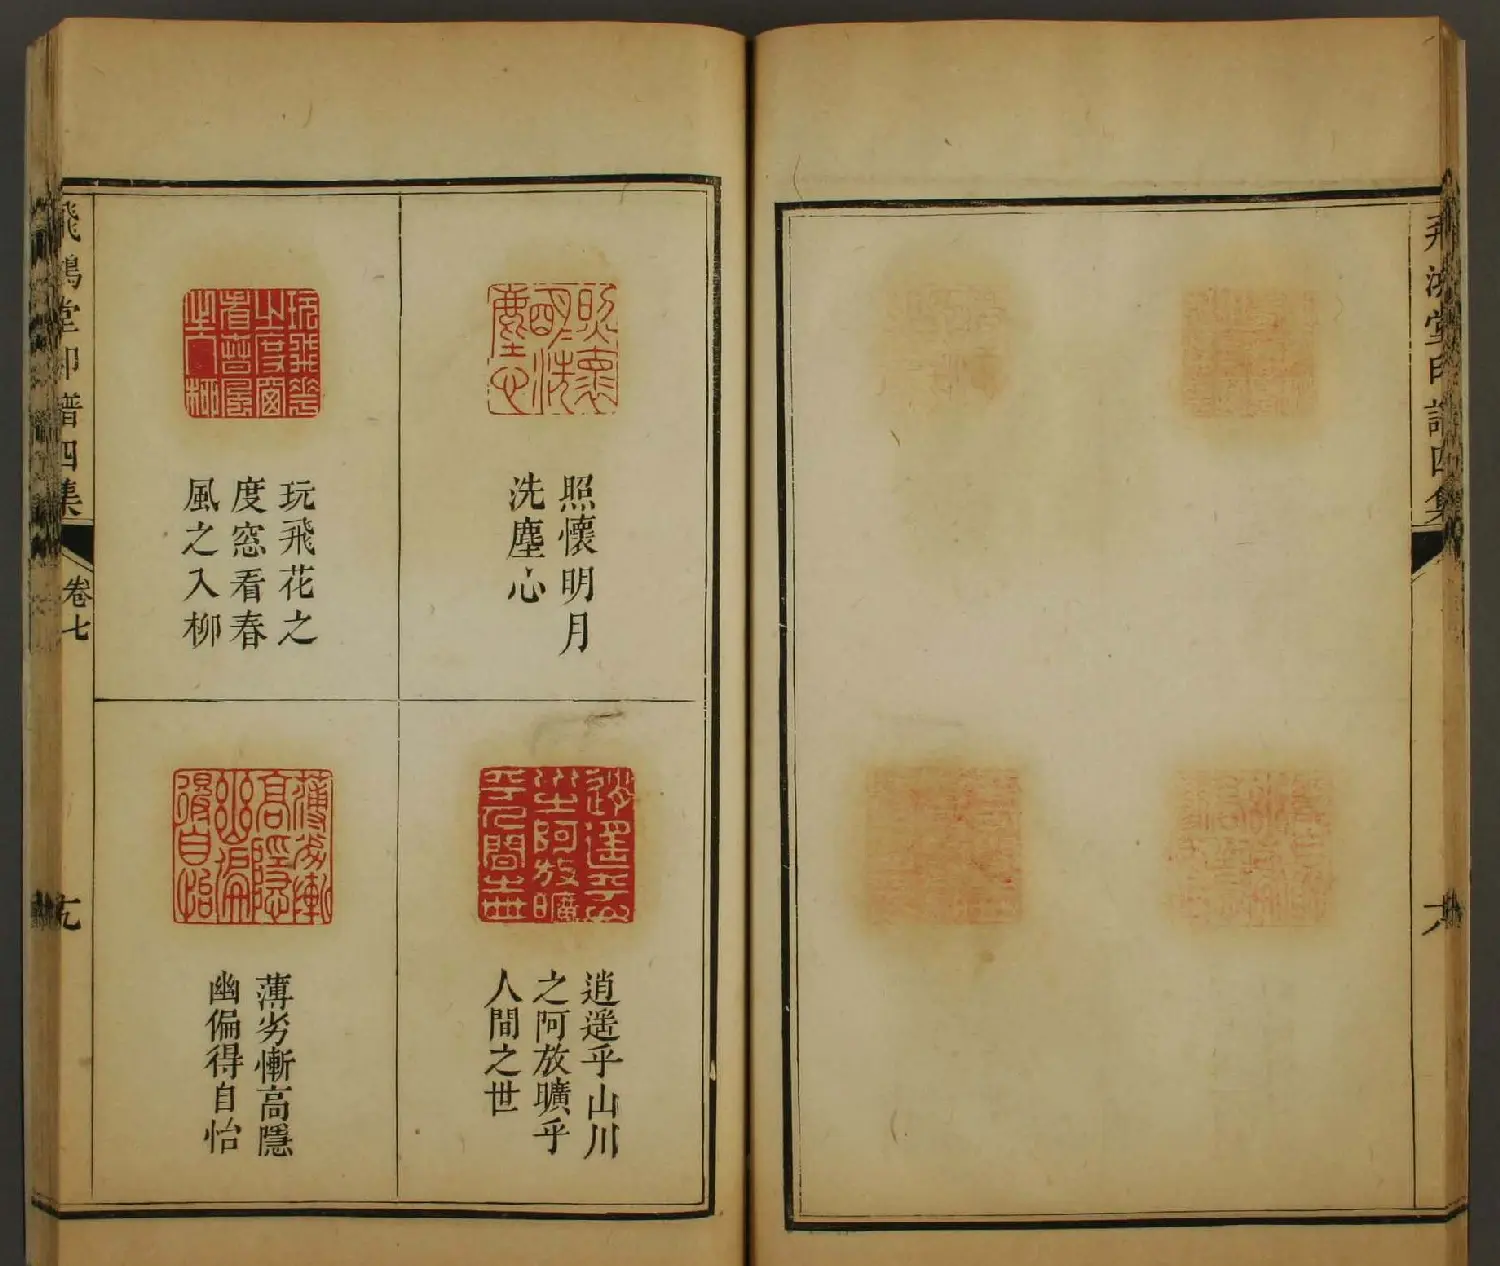 飛鴻堂印譜四集
照懷明月
洗塵心
玩飛花之
度窓看春
風之入柳
逍遥乎山川
之阿放曠乎
人間之世
薄劣慚高隱
幽偏得自怡
飛鴻堂印譜四集
卷七